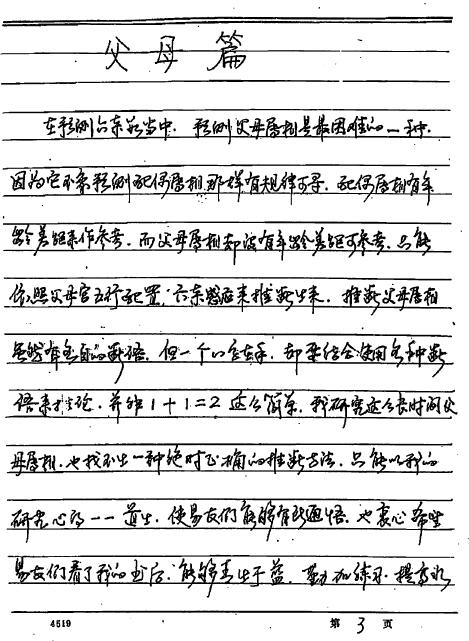 父母篇
在预测六亲节当中，预测父母属相是最困难的一种，
因为它不象预测配偶属相那样有规律可寻。配偶属相有年
龄差距来作参考，而父母属相却没有年龄差距可参考，只能
依照父母宫五行配置，六亲感应来推断出来。推断父母属相
虽然有各自的断语，但一个八字在手，却要结合使用各种断
语来推论，并非1+1=2这么简单，我研究这么长时间父
母属相，也找不出一种绝对正确的推断方法，只能以我的
研究心得一一道出，使易友们能够有所通悟，也衷心希望
易友们看了我的书后，能够青出于蓝，勤加练习，提高水
4519 第3页